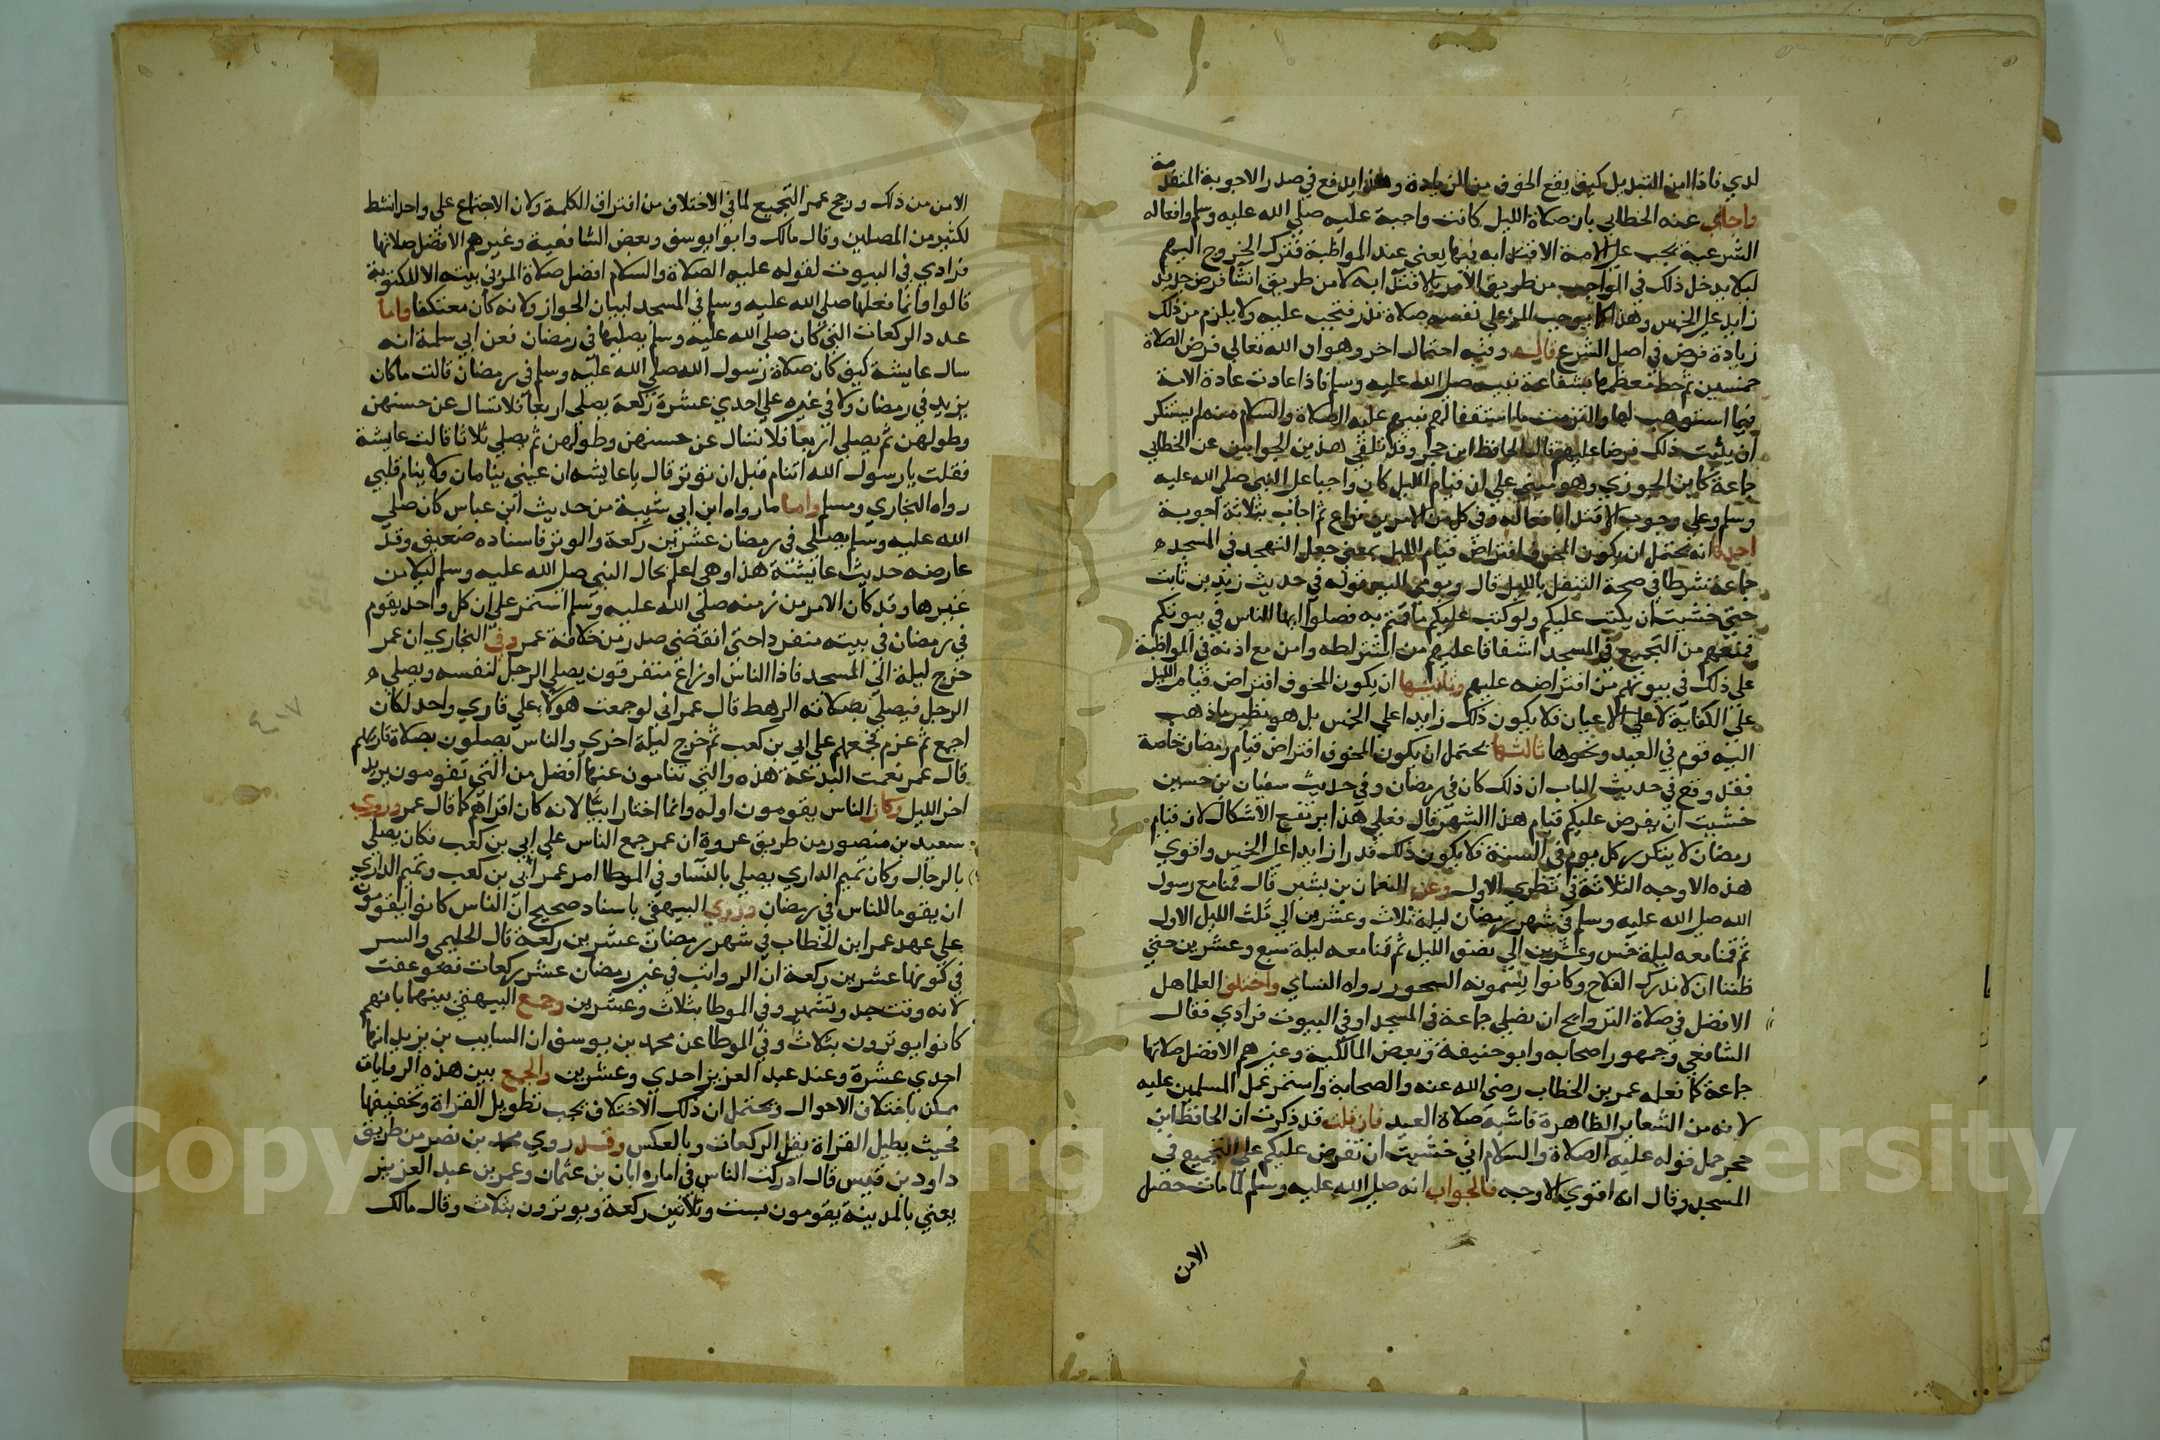 لدي فاذا امن التبديل كيف يقع الخوف من الزيادة وهذا يدفع في صدر الاجوبة المتقدمة
واجاب عنه الخطابي بان صلاة الليل كانت واجبة عليه صلى الله عليه وسلم وافعاله
الشرعية يجب على الامة الاقتدا به فيها يعني عند المواظبة فترك الخروج اليهم
ليلا يدخل ذلك في الواجب من طريق الامر بالاقتدا به لا من طريق انشا فرض جديد
زايد على الخمس وهذا كما يوجب المرء على نفسه صلاة نذر فتجب عليه ولا يلزم من ذلك
زيادة فرض في اصل الشرع قال وفيه احتمال اخر وهو ان الله تعالى فرض الصلاة
خمسين ثم حط معظمها بشفاعة نبيه صلى الله عليه وسلم فاذا عادت عادة الامة
فيما استوهب لها والتزمت ما استعفا لهم نبيهم عليه الصلاة والسلام منه لم يستنكر
ان يثبت ذلك فرضا عليهم قال الحافظ ابن حجر وقد تلقى هذين الجوابين عن الخطابي
جماعة كابن الجوزي وهو مبني على ان قيام الليل كان واجبا على النبي صلى الله عليه
وسلم وعلى وجوب الاقتدا بافعاله وفي كل من الامرين نزاع ثم اجاب بثلاثة اجوبة
احدها انه يحتمل ان يكون المخوف افتراض قيام الليل بمعنى جعل التهجد في المسجد
جماعة شرطا في صحة التنفل بالليل قال ويومي اليه قوله في حديث زيد بن ثابت
حتى خشيت ان يكتب عليكم ولو كتب عليكم ما قمتم به فصلوا ايها الناس في بيوتكم
فمنعهم من التجميع في المسجد اشفاقا عليهم من اشتراطه وامن مع اذنه في المواظبة
على ذلك في بيوتهم من افتراضه عليهم وثانيها ان يكون المخوف افتراض قيام الليل
على الكفاية لا على الاعيان فلا يكون ذلك زايدا على الخمس بل هو نظير ما ذهب
اليه قوم في العيد ونحوها ثالثها يحتمل ان يكون المخوف افتراض قيام رمضان خاصة
فقد وقع في حديث الباب ان ذلك كان في رمضان وفي حديث سفيان بن حسين
خشيت ان يفرض عليكم قيام هذا الشهر قال فعلى هذا يرتفع الاشكال لان قيام
رمضان لا يتكرر كل يوم في السنة فلا يكون ذلك قدرا زايدا على الخمس واقوى
هذه الاوجه الثلاثة في نظري الاول وعن النعمان بن بشير قال قمنا مع رسول
الله صلى الله عليه وسلم في شهر رمضان ليلة ثلاث وعشرين الى ثلث الليل الاول
ثم قمنا معه ليلة خمس وعشرين الى نصف الليل ثم قمنا معه ليلة سبع وعشرين حتى
ظننا ان لا ندرك الفلاح وكانوا يسمونه السحور رواه النساي واختلف العلما هل
الافضل في صلاة التراويح ان تصلي جماعة في المسجد او في البيوت فرادي فقال
الشافعي وجمهور اصحابه وابو حنيفة وبعض المالكية وغيرهم الافضل صلاتها
جماعة كما فعله عمر بن الخطاب رضي الله عنه والصحابة واستمر عمل المسلمين عليه
لانه من الشعاير الظاهرة فاشبه صلاة العيد فان قلت قد ذكرت ان الحافظ ابن
حجر حمل قوله عليه الصلاة والسلام اني خشيت ان تفرض عليكم على التجميع في
المسجد وقال انه اقوى الاوجه فالجواب انه صلى الله عليه وسلم لما مات حصل
الامن
الامن من ذلك ورجح عمر التجميع لما في الاختلاف من افتراق الكلمة ولان الاجتماع على واحد انشط
لكثير من المصلين وقال مالك وابو يوسف وبعض الشافعية وغيرهم الافضل صلاتها
فرادي في البيوت لقوله عليه الصلاة والسلام افضل صلاة المرء في بيته الا المكتوبة
قالوا وانما فعلها صلى الله عليه وسلم في المسجد لبيان الجواز ولانه كان معتكفا واما
عدد الركعات التي كان صلى الله عليه وسلم يصليها في رمضان فعن ابي سلمة انه
سال عايشة كيف كان صلاة رسول الله صلى الله عليه وسلم في رمضان قالت ما كان
يزيد في رمضان ولا في غيره على احدي عشرة ركعة يصلي اربعا فلا تسال عن حسنهن
وطولهن ثم يصلي اربعا فلا تسال عن حسنهن وطولهن ثم يصلي ثلاثا قالت عايشة
فقلت يا رسول الله اتنام قبل ان توتر قال يا عايشه ان عيني ينامان ولا ينام قلبي
رواه البخاري ومسلم واما ما رواه ابن ابي شيبة من حديث ابن عباس كان صلى
الله عليه وسلم يصلي في رمضان عشرين ركعة والوتر فاسناده ضعيف وقد
عارضه حديث عايشة هذا وهي اعلم بحال النبي صلى الله عليه وسلم ليلا من
غيرها وقد كان الامر من زمنه صلى الله عليه وسلم استمر على ان كل واحد يقوم
في رمضان في بيته منفردا حتى انقضى صدر من خلافة عمر وفي البخاري ان عمر
خرج ليلة الى المسجد فاذا الناس اوزاع متفرقون يصلي الرجل لنفسه ويصلي
الرجل فيصلي بصلاته الرهط قال عمر اني لو جمعت هولاء على قاري واحد لكان
اجمع ثم عزم فجمعهم على ابي بن كعب ثم خرج ليلة اخري والناس يصلون بصلاة قاريهم
قال عمر نعمت البدعة هذه والتي تنامون عنها افضل من التي تقومون يريد
اخر الليل وكان الناس يقومون اوله وانما اختار ابيا لانه كان اقراهم كما قال عمر وروي
سعيد بن منصور من طريق عروة ان عمر جمع الناس على ابي بن كعب فكان يصلي
بالرجال وكان تميم الداري يصلي بالنسا وفي الموطا امر عمر ابي بن كعب وتميم الداري
ان يقوما للناس في رمضان وروي البيهقي باسناد صحيح ان الناس كانوا يقومون
على عهد عمر ابن الخطاب في شهر رمضان عشرين ركعة قال الحليمي والسر
في كونها عشرين ركعة ان الرواتب في غير رمضان عشر ركعات فضوعفت
لانه وقت جد وتشمير وفي الموطا بثلاث وعشرين وجمع البيهقي بينهما بانهم
كانوا يوترون بثلاث وفي الموطا عن محمد بن يوسف ان السايب بن يزيد انها
احدي عشرة وعند عبد العزيز احدي وعشرين والجمع بين هذه الروايات
ممكن باختلاف الاحوال ويحتمل ان ذلك الاختلاف بحب تطويل القراة وتخفيفها
فحيث يطيل القراة يقل الركعات وبالعكس وقد روي محمد بن نصر من طريق
داود بن قيس قال ادركت الناس في اماره ابان بن عثمان وعمر بن عبد العزيز
يعني بالمدينة يقومون بست وثلاثين ركعة ويوترون بثلاث وقال مالك